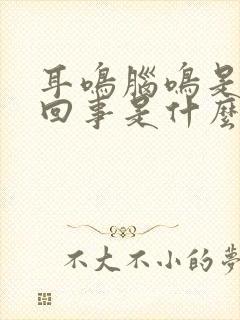 耳鳴腦鳴是
回事是什麼
不大不小的夢